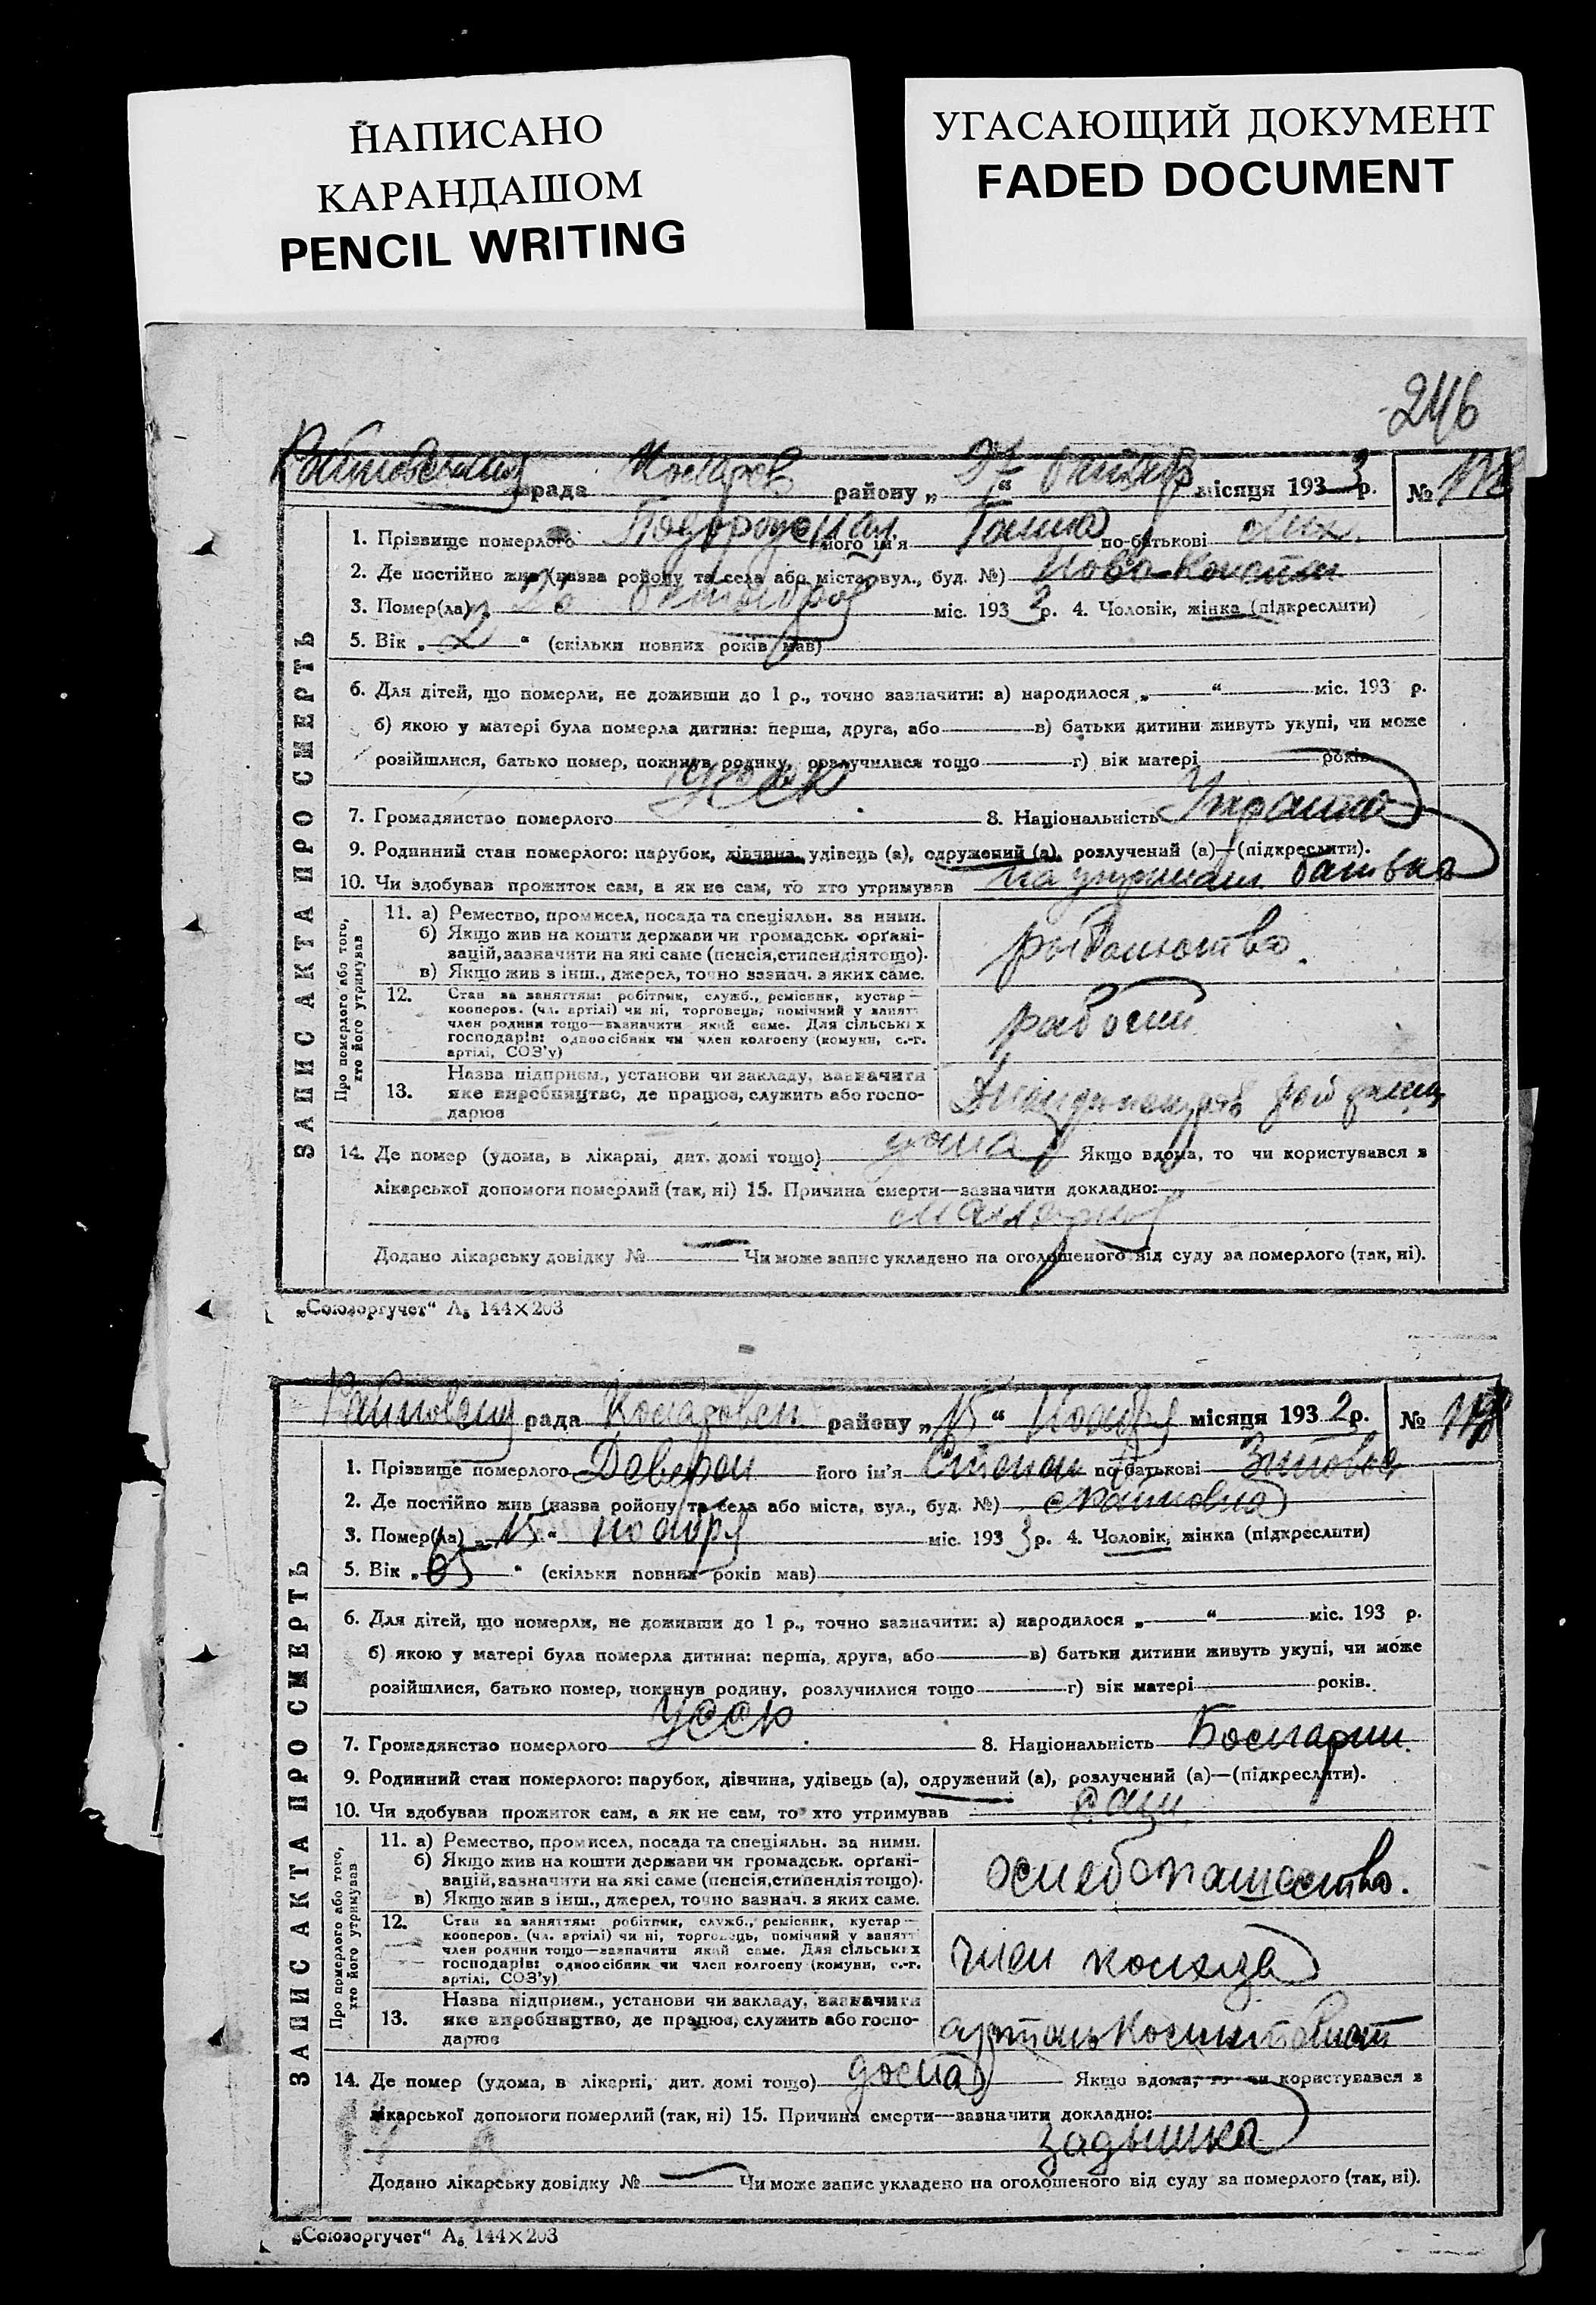 НАПИСАНО
КАРАНДАШОМ
PENCIL WRITING
УГАСАЮЩИЙ ДОКУМЕНТ
FADED DOCUMENT
246
рада району „27“ октября місяця 1933 р. №
ЗАПИС АКТА ПРО СМЕРТЬ
1. Прізвище померлого його ім'я Галина по-батькові Мих.
2. Де постійно жив (назва району та села або міста, вул., буд. №) Ново
3. Помер(ла) „26“ октября міс. 1933 р. 4. Чоловік, жінка (підкреслити)
5. Вік „2“ (скільки повних років мав)
6. Для дітей, що померли, не доживши до 1 р., точно зазначити: а) народилося „ “ міс. 193 р.
б) якою у матері була померла дитина: перша, друга, або в) батьки дитини живуть укупі, чи може
розійшлися, батько помер, покинув родину, розлучилися тощо г) вік матері років.
7. Громадянство померлого 8. Національність
9. Родинний стан померлого: парубок, дівчина, удівець (а), одружений (а), розлучений (а)—(підкреслити).
10. Чи здобував прожиток сам, а як не сам, то хто утримував на батька
Про померлого або того, хто його утримував
11. а) Ремество, промисел, посада та спеціяльн. за ними.
б) Якщо жив на кошти держави чи громадськ. орґані-
зацій, зазначити на які саме (пенсія, стипендія тощо).
в) Якщо жив з інш., джерел, точно зазнач. з яких саме.
12. Стан за заняттям: робітник, служб., ремісник, кустар—
кооперов. (чл. артілі) чи ні, торговець, помічний у занятт
член родини тощо—зазначити який саме. Для сільських
господарів: одноосібник чи член колгоспу (комуни, с.-г.
артілі, СОЗ'у)
13. Назва підприєм., установи чи закладу, зазначити
яке виробництво, де працює, служить або госпо-
дарює
14. Де помер (удома, в лікарні, дит. домі тощо) дома Якщо вдома, то чи користувався з
лікарської допомоги померлий (так, ні) 15. Причина смерти—зазначити докладно:
малярия
Додано лікарську довідку № — Чи може запис укладено на оголошеного від суду за померлого (так, ні).
„Союзоргучет“ А₅ 144×203
рада району „15“ ноября місяця 1932 р. №
ЗАПИС АКТА ПРО СМЕРТЬ
1. Прізвище померлого його ім'я Степан по-батькові
2. Де постійно жив (назва району та села або міста, вул., буд. №)
3. Помер(ла) „15“ ноября міс. 1933 р. 4. Чоловік, жінка (підкреслити)
5. Вік „65“ (скільки повних років мав)
6. Для дітей, що померли, не доживши до 1 р., точно зазначити: а) народилося „ “ міс. 193 р.
б) якою у матері була померла дитина: перша, друга, або в) батьки дитини живуть укупі, чи може
розійшлися, батько помер, покинув родину, розлучилися тощо г) вік матері років.
7. Громадянство померлого 8. Національність
9. Родинний стан померлого: парубок, дівчина, удівець (а), одружений (а), розлучений (а)—(підкреслити).
10. Чи здобував прожиток сам, а як не сам, то хто утримував
Про померлого або того, хто його утримував
11. а) Ремество, промисел, посада та спеціяльн. за ними.
б) Якщо жив на кошти держави чи громадськ. орґані-
зацій, зазначити на які саме (пенсія, стипендія тощо).
в) Якщо жив з інш., джерел, точно зазнач. з яких саме.
12. Стан за заняттям: робітник, служб., ремісник, кустар—
кооперов. (чл. артілі) чи ні, торговець, помічний у занятт
член родини тощо—зазначити який саме. Для сільських
господарів: одноосібник чи член колгоспу (комуни, с.-г.
артілі, СОЗ'у)
член
13. Назва підприєм., установи чи закладу, зазначити
яке виробництво, де працює, служить або госпо-
дарює
14. Де помер (удома, в лікарні, дит. домі тощо) дома Якщо вдома, то чи користувався з
лікарської допомоги померлий (так, ні) 15. Причина смерти—зазначити докладно:
задышка
Додано лікарську довідку № — Чи може запис укладено на оголошеного від суду за померлого (так, ні).
„Союзоргучет“ А₅ 144×203